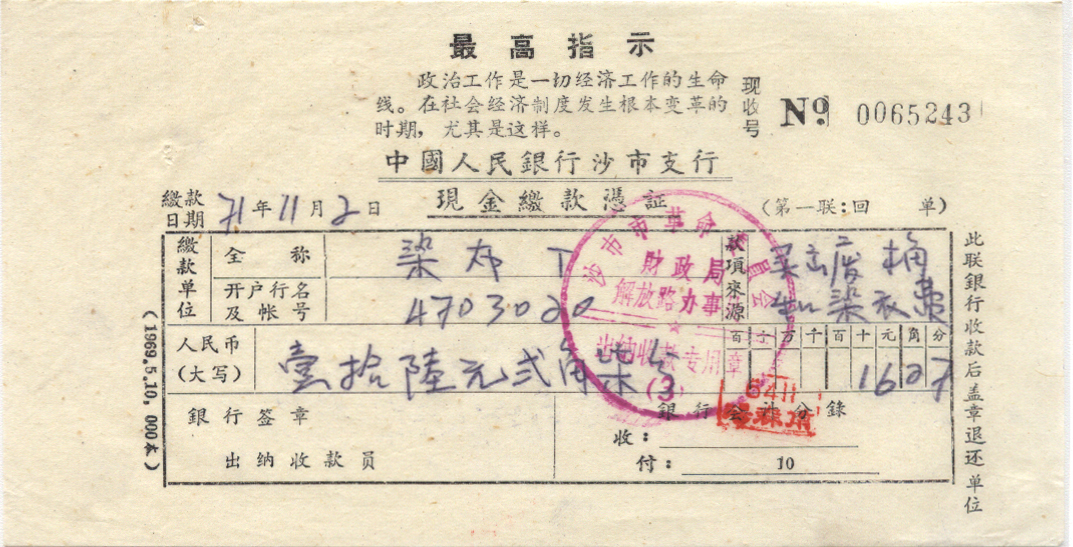 最高指示
政治工作是一切经济工作的生命
线。在社会经济制度发生根本变革的
时期，尤其是这样。
现收号 No 0065243
中國人民銀行沙市支行
現金繳款憑証
繳款日期 71年11月2日
(第一联:回 单)
繳款单位
全称 染布厂
开户行名及帐号 4703020
款項來源 卖出废桶和染衣费
人民币(大写) 壹拾陸元弍角柒分
百十万千百十元角分
1627
銀行签章
出纳收款員
銀行会計分錄
收:
付: 10
沙市市革命委員会
財政局
解放路办事
★
出纳收款专用章
(3)
6411
(1969.5.10,000本)
此联銀行收款后盖章退还单位